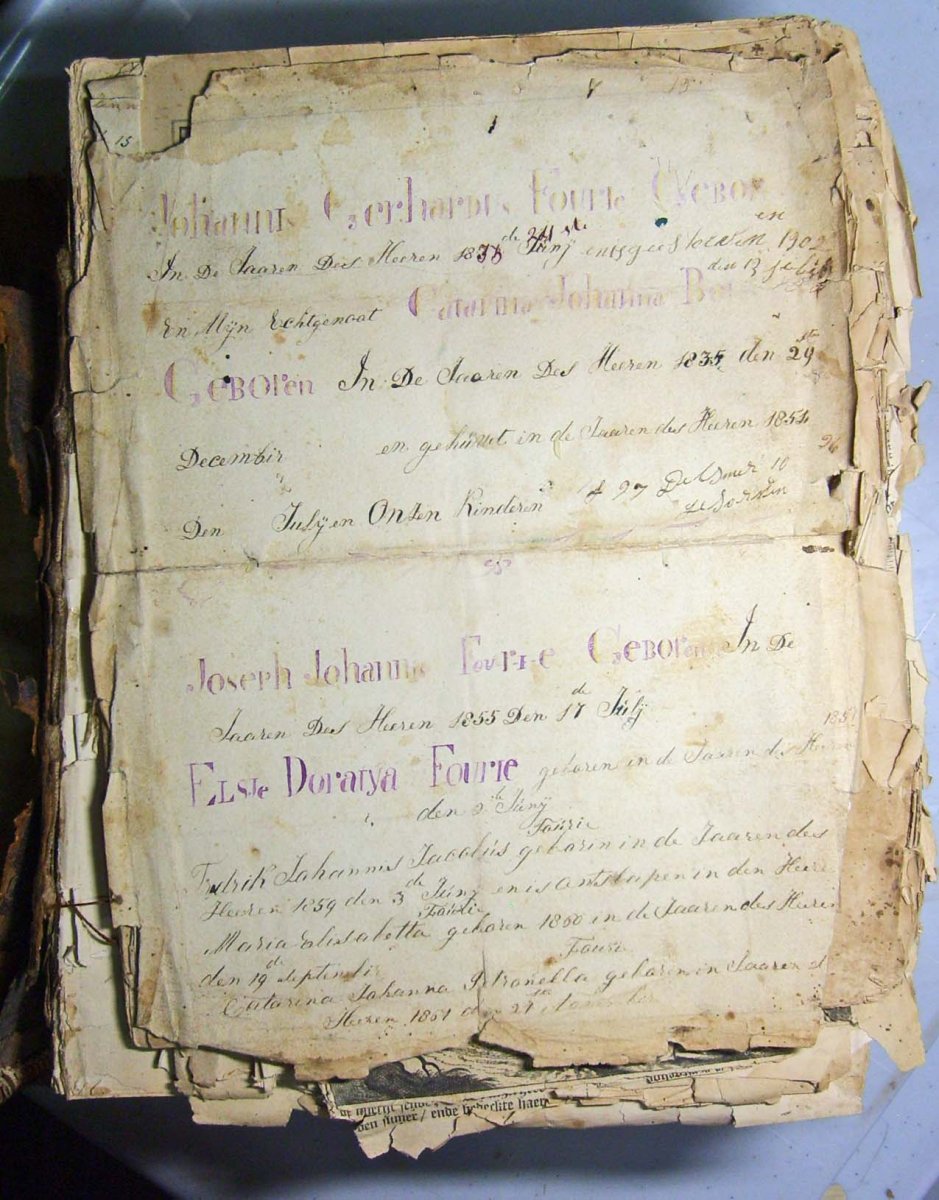 15
Johannis Gerhardus Fourie Gebor
In De Jaaren Des Heeren de 24ste Junij en is gestorven 1902
den 13
En Mijn Echtgenoot Catarina Johanna
Geboren In De Jaaren Des Heeren 1835 den 29ste
Decembir en gehüwt in de Jaaren des Heeren 1854
Den Julij en Onsen Kinderen 97 10
Joseph Johannis Fourie Geboren In De
Jaaren Des Heeren 1855 Den 17de Julij
Elsje Doratya Fourie geboren in de Jaaren des Heeren
den Junij
Fourie
Fredrik Johannis Jacobus geborin in de Jaaren des
Heeren 1859 den 3de Junij en is ontslapen in den Heere
Fourie
Maria Elisabetta geboren 1860 in de Jaaren des Heeren
den 19de Septembir
Fouri
Catarina Johanna Petronella geboren in Jaaren
Heeren 1861 den
/ ende bedeckte haer